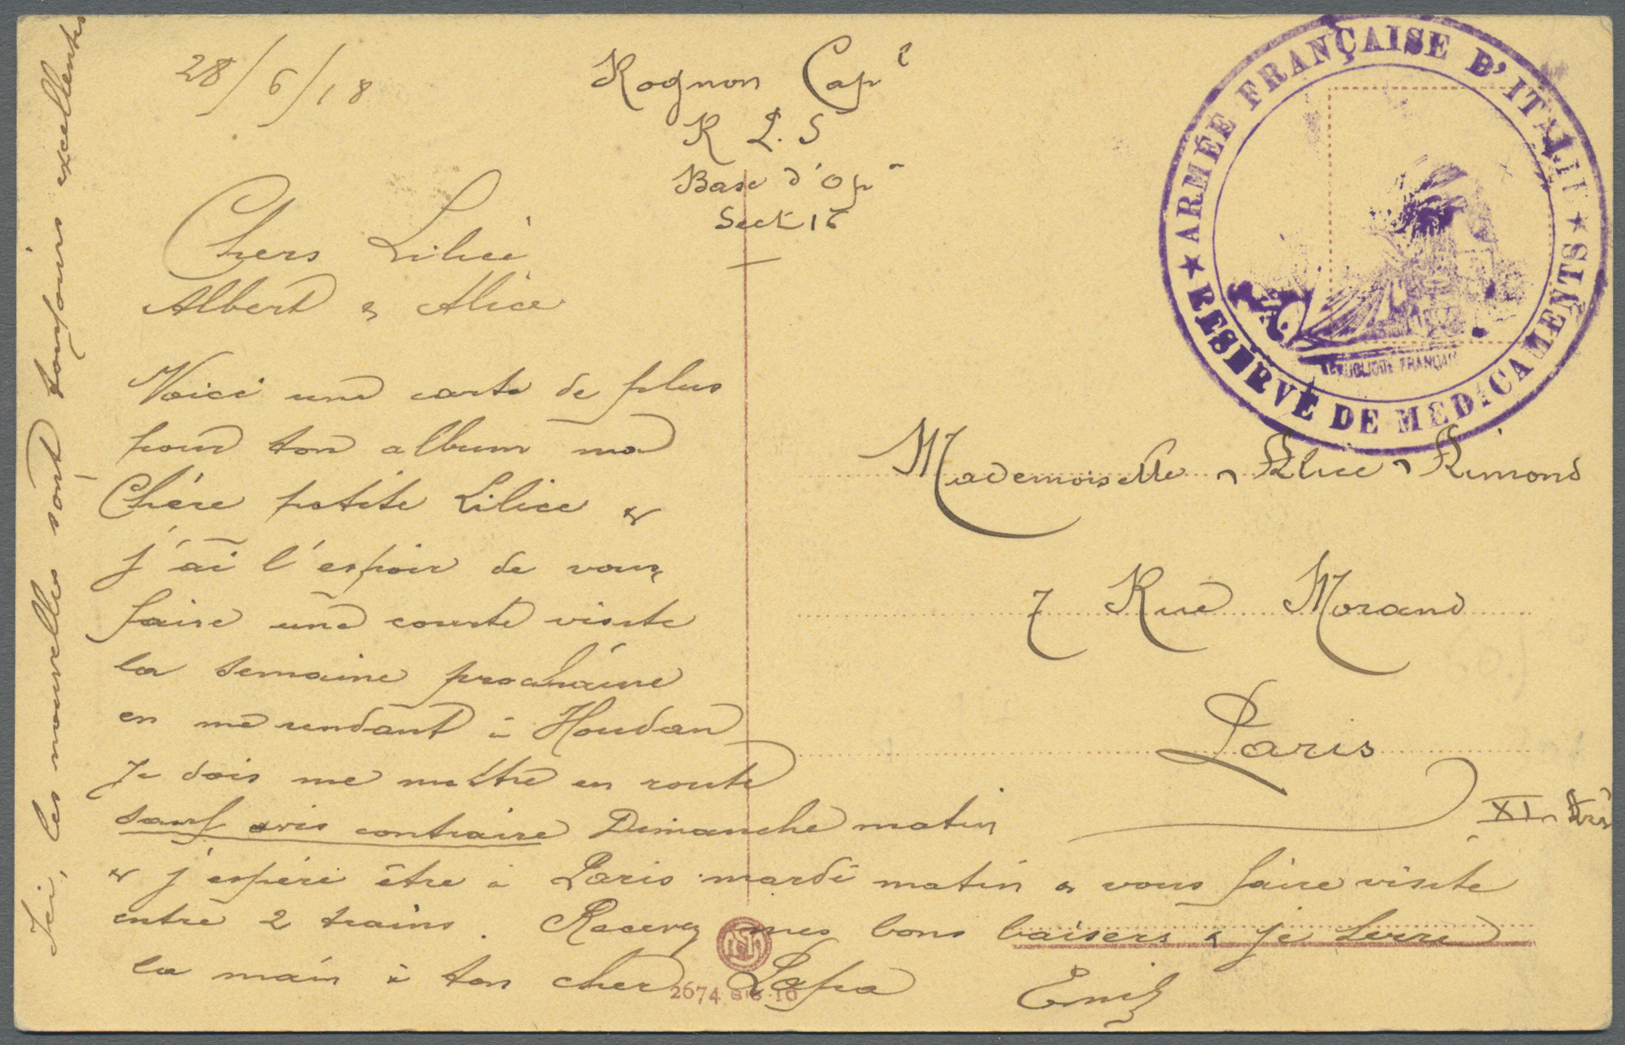 28/6/18
Rognon Cap l
R L. S
Base d'Op
Sect 16
ARMÉE FRANÇAISE D'ITALIE
RESERVE DE MEDICAMENTS
REPUBLIQUE FRANÇAISE
Chers Lilice
Albert & Alice
Voici une carte de plus
pour ton album ma
Chère petite Lilice &
j'ai l'espoir de vous
faire une courte visite
la semaine prochaine
en me rendant à Houdan
Je dois me mettre en route
sauf avis contraire Dimanche matin
& j'espère être à Paris mardi matin & vous faire visite
entre 2 trains. Recevez mes bons baisers & je serre
la main à ton cher Papa Emile
Ici, les nouvelles sont toujours excellentes
Mademoiselle Alice Rimond
7 Rue Morand
Paris
XI
2674